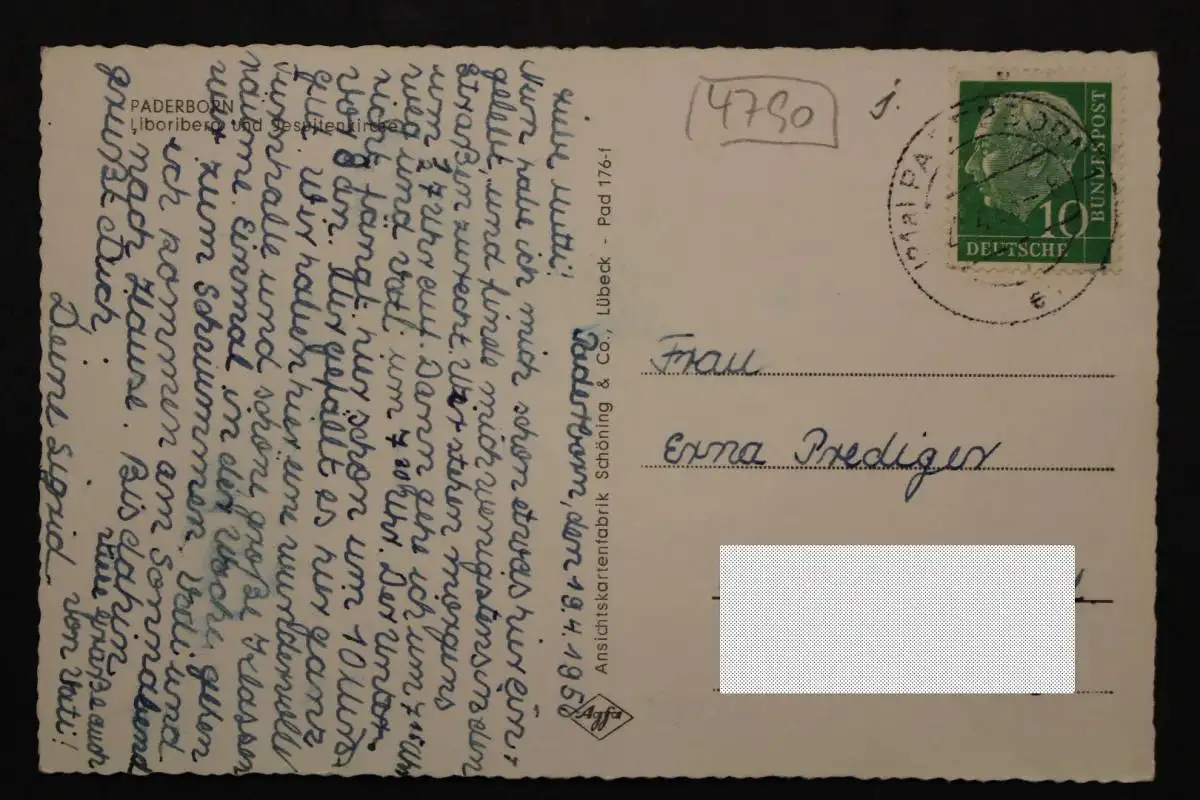 PADERBORN
Liboriberg und Jesuitenkirche
Paderborn, den 19.4.1958
Liebe Mutti!
Nun habe ich mich schon etwas hier ein-
gelebt, und finde mich wenigstens in den
Straßen zurecht. Wir stehen morgens
um 7 Uhr auf. Dann gehe ich um 7 15 Uhr
weg und Vati um 7 Uhr. Der Unter-
richt fängt hier schon um
vor 8 an. Mir gefällt es hier ganz
gut. Wir haben hier eine wundervolle
Turnhalle und schöne große Klassen
räume. Einmal in der Woche gehen
wir zum Schwimmen. Vati und
ich kommen am Sonnabend
nach Hause. Bis dahin
grüßt Dich
Deine Sigrid
Viele Grüße auch
von Vati!
Ansichtskartenfabrik Schöning & Co., Lübeck - Pad 176-f
Agfa
4790
j.
PADERBORN
e
10
DEUTSCHE
BUNDESPOST
Frau
Erna Prediger